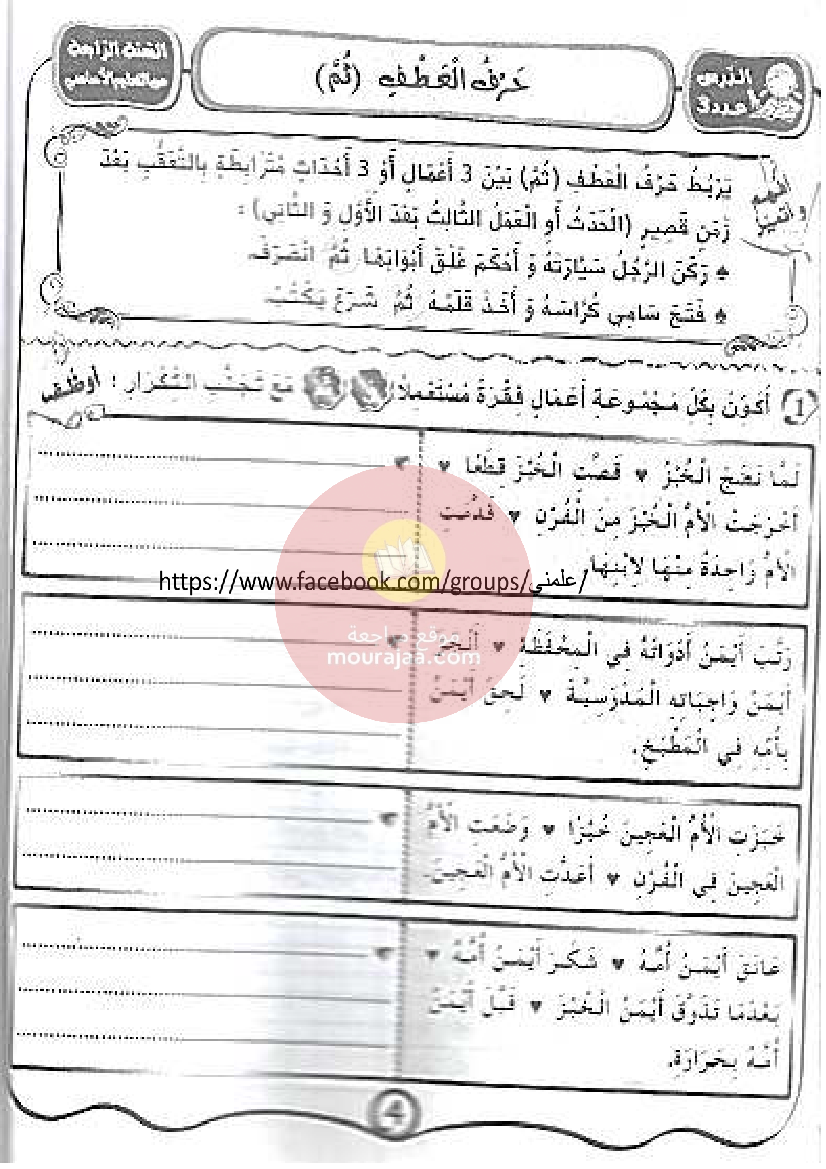 السّنة الرّابعة
من التعليم الأساسي
حَرْفُ الْعَطْفِ (ثُمَّ)
الدّرس
عدد 3
أفهم
و أتميّز
يَرْبُطُ حَرْفُ الْعَطْفِ (ثُمَّ) بَيْنَ 3 أَعْمَالٍ أَوْ 3 أَحْدَاثٍ مُتَرَابِطَةٍ بِالتَّعَقُّبِ بَعْدَ
زَمَنٍ قَصِيرٍ (الْحَدَثُ أَوِ الْعَمَلُ الثَّالِثُ بَعْدَ الْأَوَّلِ وَ الثَّانِي) :
♠ رَكَنَ الرَّجُلُ سَيَّارَتَهُ وَ أَحْكَمَ غَلْقَ أَبْوَابِهَا ثُمَّ انْصَرَفَ
♠ فَتَحَ سَامِي كُرَّاسَهُ وَ أَخَذَ قَلَمَهُ ثُمَّ شَرَعَ يَكْتُبُ
1 أُكَوِّنُ بِكُلِّ مَجْمُوعَةِ أَعْمَالٍ فِقْرَةً مُسْتَعْمِلًا مَعَ تَجَنُّبِ التِّكْرَارِ : أوظّف
لَمَّا نَضَجَ الْخُبْزُ ♥ قَصَّتِ الْخُبْزَ قِطَعًا ♥
أَخْرَجَتْ الْأُمُّ الْخُبْزَ مِنَ الْفُرْنِ ♥ قَدَّمَتِ
الْأُمُّ وَاحِدَةً مِنْهَا لِابْنِهَا.
https://www.facebook.com/groups/علمني/
موقع مراجعة
mourajaa.com
رَتَّبَ أَيْمَنُ أَدَوَاتَهُ فِي الْمِحْفَظَةِ ♥ أَنْجَزَ
أَيْمَنُ وَاجِبَاتِهِ الْمَدْرَسِيَّةَ ♥ لَحِقَ أَيْمَنُ
بِأُمِّهِ فِي الْمَطْبَخِ.
خَبَزَتِ الْأُمُّ الْعَجِينَ خُبْزًا ♥ وَضَعَتِ الْأُمُّ
الْعَجِينَ فِي الْفُرْنِ ♥ أَعَدَّتِ الْأُمُّ الْعَجِينَ.
عَانَقَ أَيْمَنُ أُمَّهُ ♥ شَكَرَ أَيْمَنُ أُمَّهُ ♥
بَعْدَمَا تَذَوَّقَ أَيْمَنُ الْخُبْزَ ♥ قَبَّلَ أَيْمَنُ
أُمَّهُ بِحَرَارَةٍ.
4